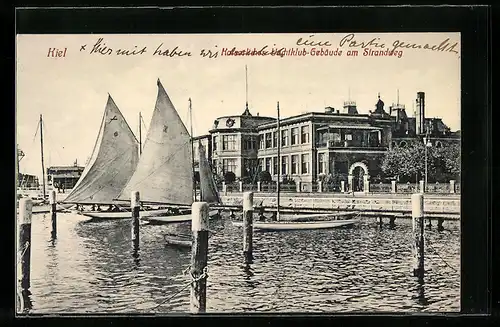 Kiel × Hiermit haben wir eine Partie gemacht
Yachtklub-Gebäude am Strandweg